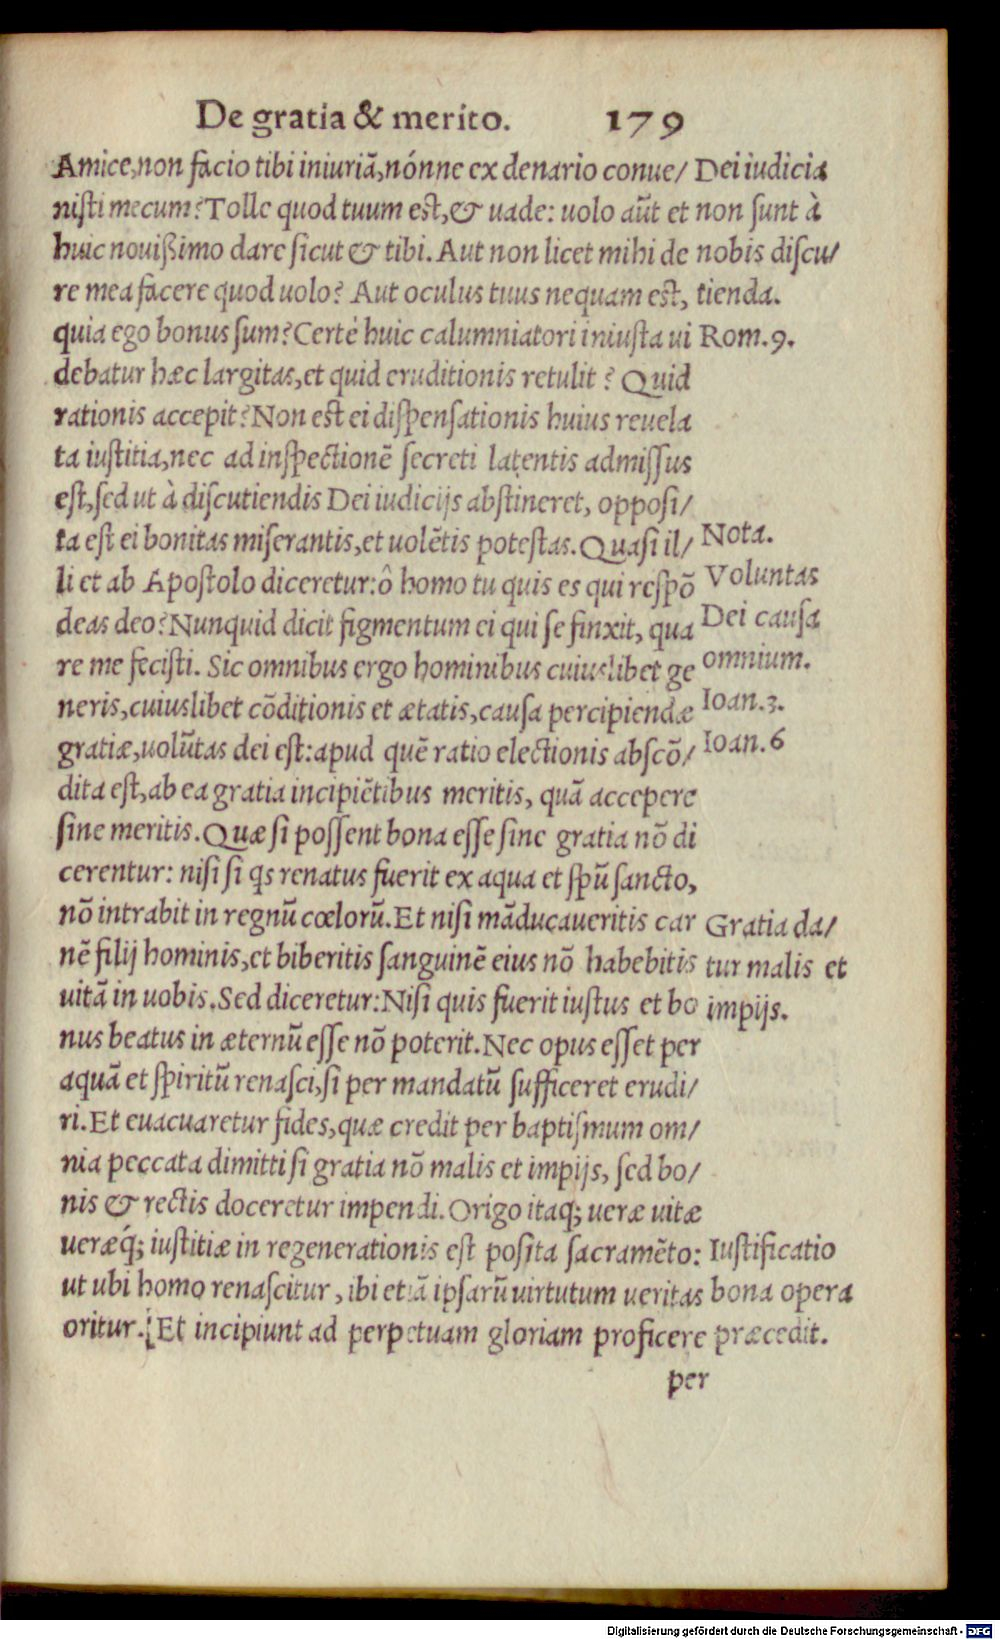 De gratia & merito. 179
Amice, non facio tibi iniuriã, nónne ex denario conue/
nisti mecum? Tolle quod tuum est, & uade: uolo aũt et
huic nouißimo dare sicut & tibi. Aut non licet mihi de
re mea facere quod uolo? Aut oculus tuus nequam est,
quia ego bonus sum? Certè huic calumniatori iniusta ui
debatur hæc largitas, et quid eruditionis retulit? Quid
rationis accepit? Non est ei dispensationis huius reuela
ta iustitia, nec ad inspectionẽ secreti latentis admissus
est, sed ut à discutiendis Dei iudicijs abstineret, opposi/
ta est ei bonitas miserantis, et uolẽtis potestas. Quasi il/
li et ab Apostolo diceretur: ô homo tu quis es qui respõ
deas deo? Nunquid dicit figmentum ei qui se finxit, qua
re me fecisti. Sic omnibus ergo hominibus cuiuslibet ge
neris, cuiuslibet cõditionis et ætatis, causa percipiendæ
gratiæ, uolũtas dei est: apud quẽ ratio electionis abscõ/
dita est, ab ea gratia incipiẽtibus meritis, quã accepere
sine meritis. Quæ si possent bona esse sine gratia nõ di
cerentur: nisi si qs renatus fuerit ex aqua et spũ sancto,
nõ intrabit in regnũ cœlorũ. Et nisi mãducaueritis car
nẽ filij hominis, et biberitis sanguinẽ eius nõ habebitis
uitã in uobis. Sed diceretur: Nisi quis fuerit iustus et bo
nus beatus in æternũ esse nõ poterit. Nec opus esset per
aquã et spiritũ renasci, si per mandatũ sufficeret erudi/
ri. Et euacuaretur fides, quæ credit per baptismum om/
nia peccata dimitti si gratia nõ malis et impijs, sed bo/
nis & rectis doceretur impendi. Origo itaq; ueræ uitæ
ueræq́; iustitiæ in regenerationis est posita sacramẽto:
ut ubi homo renascitur, ibi etiã ipsarũ uirtutum ueritas
oritur. [Et incipiunt ad perpetuam gloriam proficere
per
Dei iudicia
non sunt à
nobis discu/
tienda.
Rom. 9.
Nota.
Voluntas
Dei causa
omnium.
Ioan. 3.
Ioan. 6
Gratia da/
tur malis et
impijs.
Iustificatio
bona opera
præcedit.
Digitalisierung gefördert durch die Deutsche Forschungsgemeinschaft - DFG